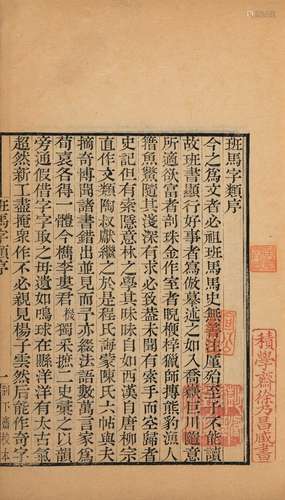 班馬字類序
今之為文者必祖班馬馬史無善注厪殆至于不能讀
故班書顯行好事者寫倣摹述如入喬嶽巨川隨意
所適欲富者剖珠金作室者睨楩梓獵師搏熊豹漁人
籍魚鱉隨其淺深有求必致盡未聞有索手而空歸者
史記但有索隱意林之學其昧自如西漢自唐柳宗
直作文類陶叔獻繼之於是程氏誨蒙陳氏六帖之
摘奇博聞諸書錯出並見而予亦綴法語數萬言家爲
荀袁各得一體今檇李婁君機獨采摭二史彙之以韻
旁通假借字字取之毋遺如鳴球在縣洋洋有太古氣
超然新工盡掩衆作不必親見楊子雲然後能作奇字
班馬字類序
一
積學齋徐乃昌藏書